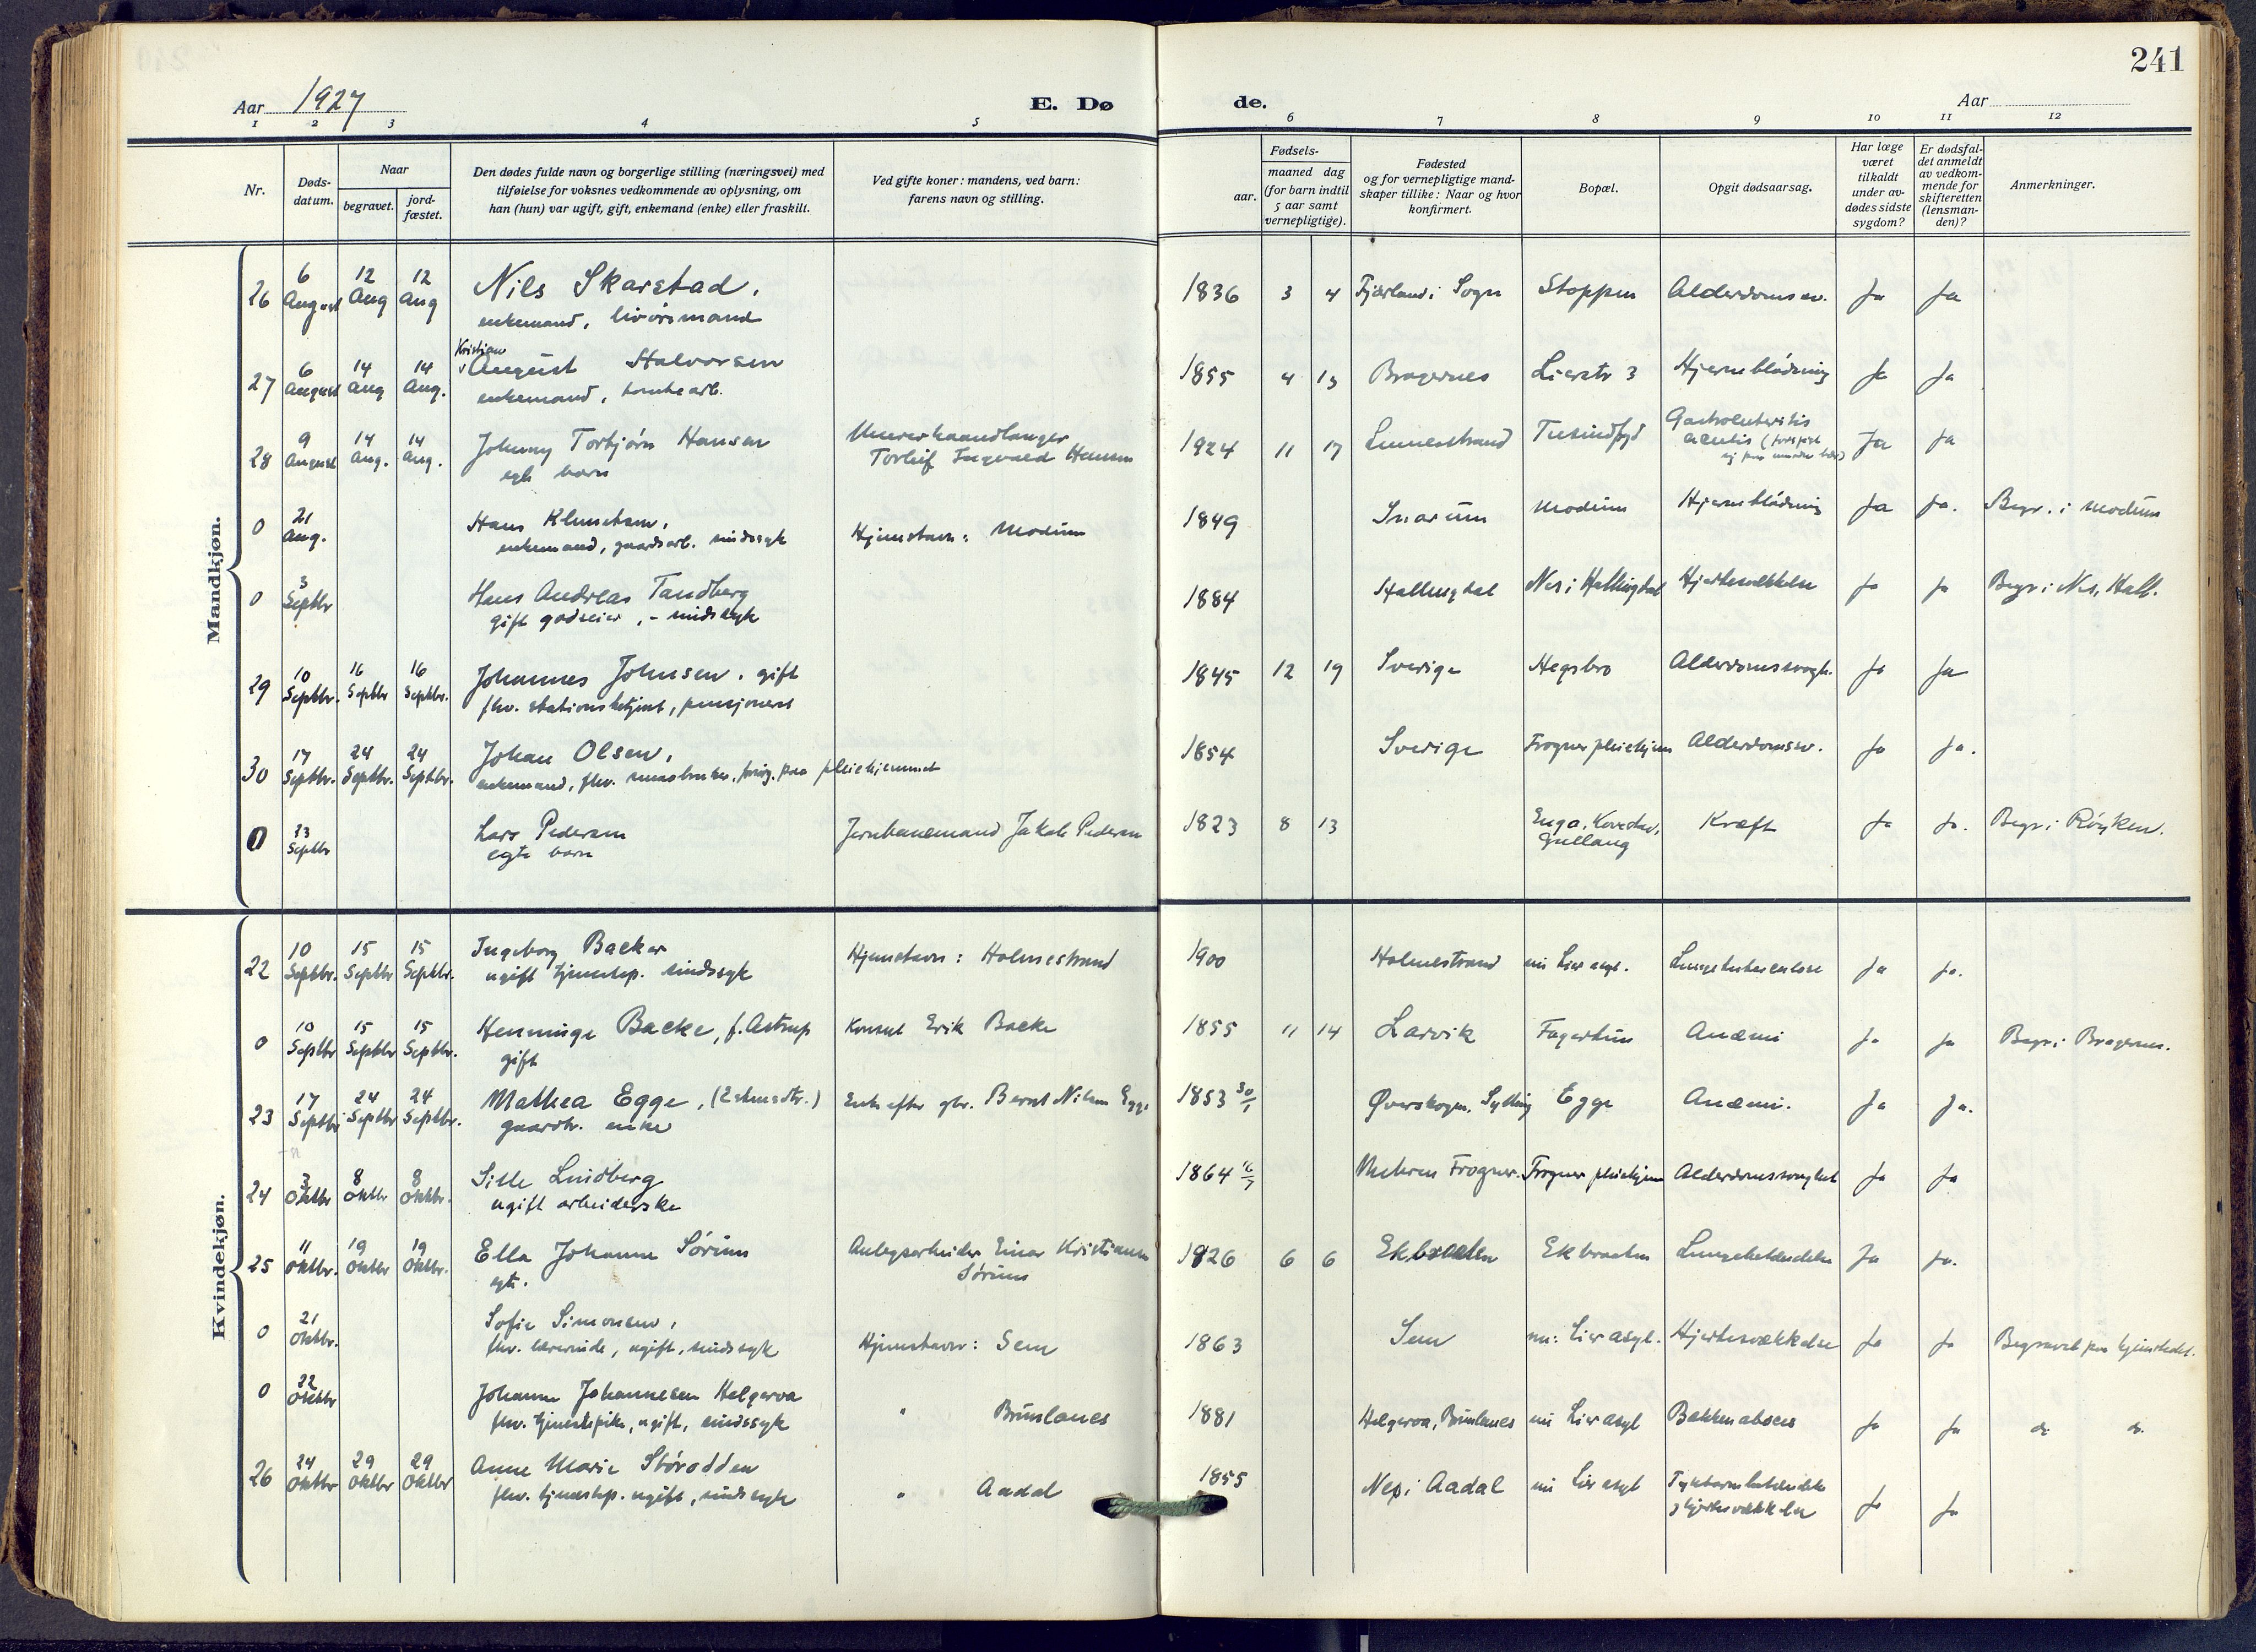 241
Aar 1927
E. Dø
de.
Aar
1 2 3 4 5 6 7 8 9 10 11 12
Nr.
Døds-
datum.
Naar
begravet.
jord-
fæstet.
Den dødes fulde navn og borgerlige stilling (næringsvei) med
tilføielse for voksnes vedkommende av oplysning, om
han (hun) var ugift, gift, enkemand (enke) eller fraskilt.
Ved gifte koner: mandens, ved barn:
farens navn og stilling.
Fødsels-
aar.
maaned dag
(for barn indtil
5 aar samt
vernepligtige).
Fødested
og for vernepligtige mand-
skaper tillike: Naar og hvor
konfirmert.
Bopæl.
Opgit dødsaarsag.
Har læge
været
tilkaldt
under av-
dødes sidste
sygdom?
Er dødsfal-
det anmeldt
av vedkom-
mende for
skifteretten
(lensman-
den)?
Anmerkninger.
Mandkjøn.
26 6 August 12 Aug 12 Aug Nils Skarstad, 1836 3 4 Fjærland i Sogn Stoppen Alderdomssv. Ja Ja
enkemand, livørsmand
Kristian
27 6 August 14 Aug 14 Aug. August Halvorsen 1855 4 13 Bragernes Lierstr 3 Hjerneblødning Ja Ja
enkemand, tomtearb.
28 9 August 14 Aug. 14 Aug. Johnny Torbjørn Hansen Murerhaandlanger 1924 11 17 Linnesstrand Tusindfryd Gastroenteritis Ja Ja
egte barn Torleif Ingvald Hansen acutis
0 21 Aug. Hans Klemetsen, 1849 Snarum Modum Hjerneblødning Ja Ja. Begr. i Modum
enkemand, gaardsarb. sindssyk Hjemstavn: Modum
0 3 Septbr Hans Andreas Tandberg 1884 Hallingdal Nes i Hallingdal Hjertesvækkelse Ja Ja Begr. i Nes, Hall.
gift godseier, - sindssyk
29 10 Septbr. 16 Septbr 16 Septbr. Johannes Johnsen, gift 1845 12 19 Sverige Hegsbro Alderdomssvagh. Ja Ja
fhv. stationsbetjent, pensjonert
30 17 Septbr. 24 Septbr. 24 Septbr. Johan Olsen, 1854 Sverige Frogner pleiehjem Alderdomssv. Ja Ja.
enkemand, fhv. smaabruker, forsørg. paa pleiehjemmet
0 23 Septbr Lars Pedersen Jernbanemand Jakob Pedersen 1923 8 13 Enga, Gullaug Kræft Ja Ja. Begr. i Røyken.
egte barn
Kvindekjøn.
22 10 Septbr. 15 Septbr 15 Septbr. Ingeborg Backer Hjemstavn: Holmestrand 1900 Holmestrand nu Lier asyl. Lungetuberculose Ja Ja.
ugift tjenestep. sindssyk
0 10 Septbr 15 Septbr 15 Septbr. Henninge Backe, f. Astrup Konsul Erik Backe 1855 11 14 Larvik Fagertun Anæmi Ja Ja Begr. i Bragernes.
gift
23 17 Septbr 24 Septbr 24 Septbr. Mathea Egge, Enke efter gbr. Bernt Nilsen Egge 1853 30/1 Øverskogen, Sylling Egge Anæmi. Ja Ja.
gaardbr. enke
24 3 Oktbr 8 Oktbr 8 Oktbr. Sille Lindberg 1864 16/7 Mehren Frogner. Frogner pleiehjem Alderdomssvaghet Ja Ja
ugift arbeiderske
25 11 Oktbr. 19 Oktbr 19 Oktbr. Ella Johanne Sørum Anlegsarbeider Einar Kristiansen 1926 6 6 Ekbraaten Ekbraaten Lungebetændelse Ja Ja.
egte. Sørum
0 21 Oktbr. Sofie Simonsen, 1863 Sem nu: Lier asyl. Hjertesvækkelse Ja Ja Begravet paa hjemstedet.
fhv. lærerinde, ugift, sindssyk Hjemstavn: Sem
0 22 Oktbr Johanne Johannesen Helgeroa 1881 Helgeroa, Brunlanes nu Lier asyl Bækkenabsces Ja Ja do do.
fhv. tjenestepike, ugift, sindssyk " Brunlanes
26 24 Oktbr 29 Oktbr 29 Oktbr Anne Marie Størodden 1855 Nes i Aadal nu Lier asyl Tyktarmbetændelse Ja Ja
fhv. tjenestep. ugift, sindssyk " Aadal og hjertesvækkelse